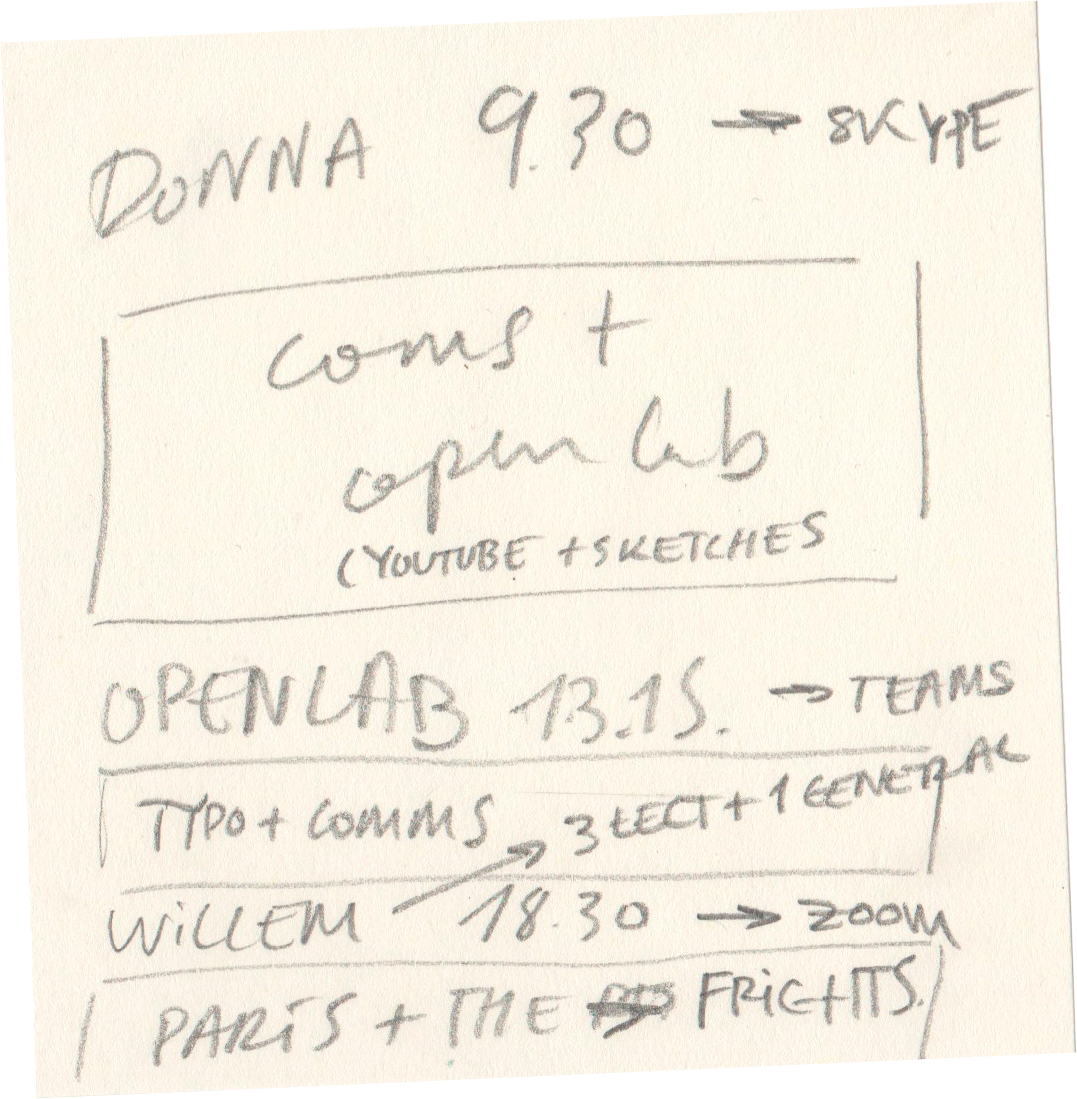 DONNA 9.30 → SKYPE
coms +
open lab
(YOUTUBE + SKETCHES
OPENLAB 13.15. → TEAMS
TYPO + COMMS 3 LECT + 1 GENERAL
WiLLEM 18.30 → ZOOM
PARiS + THE FRiGHTS.